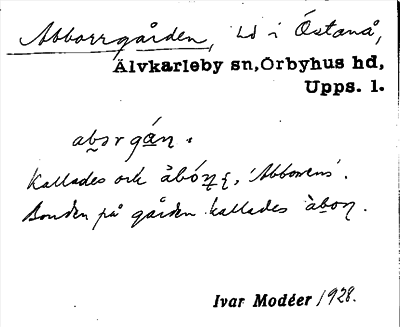 Abborrgården, ld i Östanå,
Älvkarleby sn, Örbyhus hd,
Upps. l.
abɔrgán.
Kallades ock 'Abboxens'.
Bonden på gården kallades
Ivar Modéer 1928.